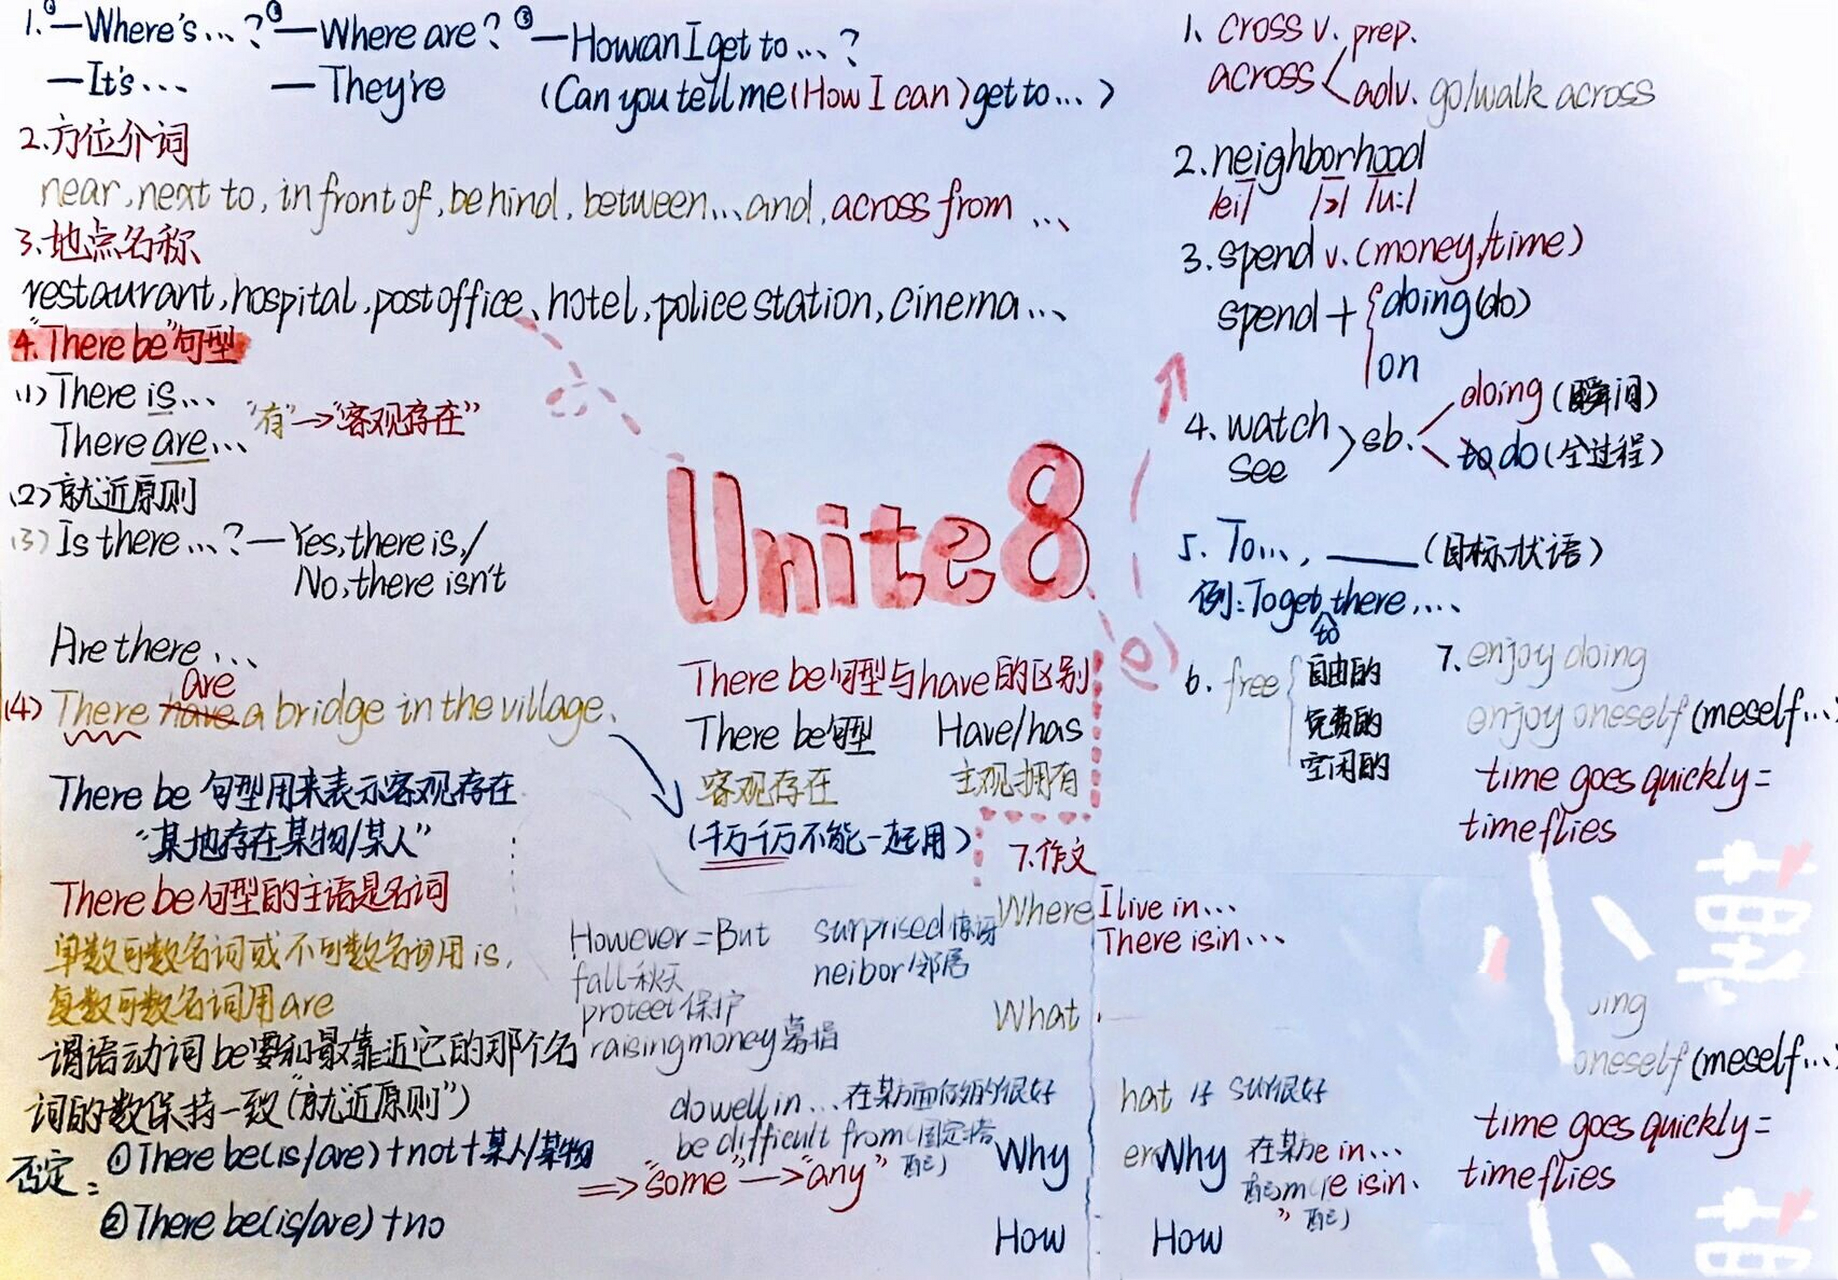 1.①—Where's...?②—Where are?③—How can I get to...?
—It's... —They're (Can you tell me(How I can)get to...)
2.方位介词
near,next to,in front of,behind,between...and,across from ...
3.地点名称
restaurant,hospital,post office、hotel,police station,cinema...、
4."There be"句型
(1)There is...
There are... "有"→"客观存在"
(2)就近原则
(3)Is there ...?—Yes,there is,/
No,there isn't
Are there ...
are
(4)There have a bridge in the village、
There be 句型用来表示客观存在
"某地存在某物/某人"
There be句型的主语是名词
单数可数名词或不可数名词用is,
复数可数名词用are
谓语动词be要和最靠近它的那个名
词的数保持一致("就近原则")
否定: ①There be(is/are)+not+某人/某物
=>"some"—>"any"
②There be(is/are)+no
Unite8
There be句型与have的区别
There be句型 Have/has
客观存在 主观拥有
(千万千万不能一起用)
However=But surprised惊讶
fall-秋天 neibor邻居
proteet保护
raising money募捐
do well in...在某方面做的很好
be difficult from(固定搭
配)
7.作文
Where I live in...
There isin...
What
Why
How
1、cross v. prep.
across adv. go/walk across
2.neighborhood
/ei/ /ɔ/ /u:/
3.spend v.(money/time)
spend+ doing(do)
on
4、watch doing(瞬间)
see sb. to do(全过程)
5、To..., ——(目标状语)
例:To get there,...
to
6.free 自由的
免费的
空闲的
7.enjoy doing
enjoy oneself(meself...
time goes quickly=
time flies
小
oing
oneself(meself...
hat 好 很好
Why 在某方e in...
配 e isin、
配)
How
time goes quickly=
time flies